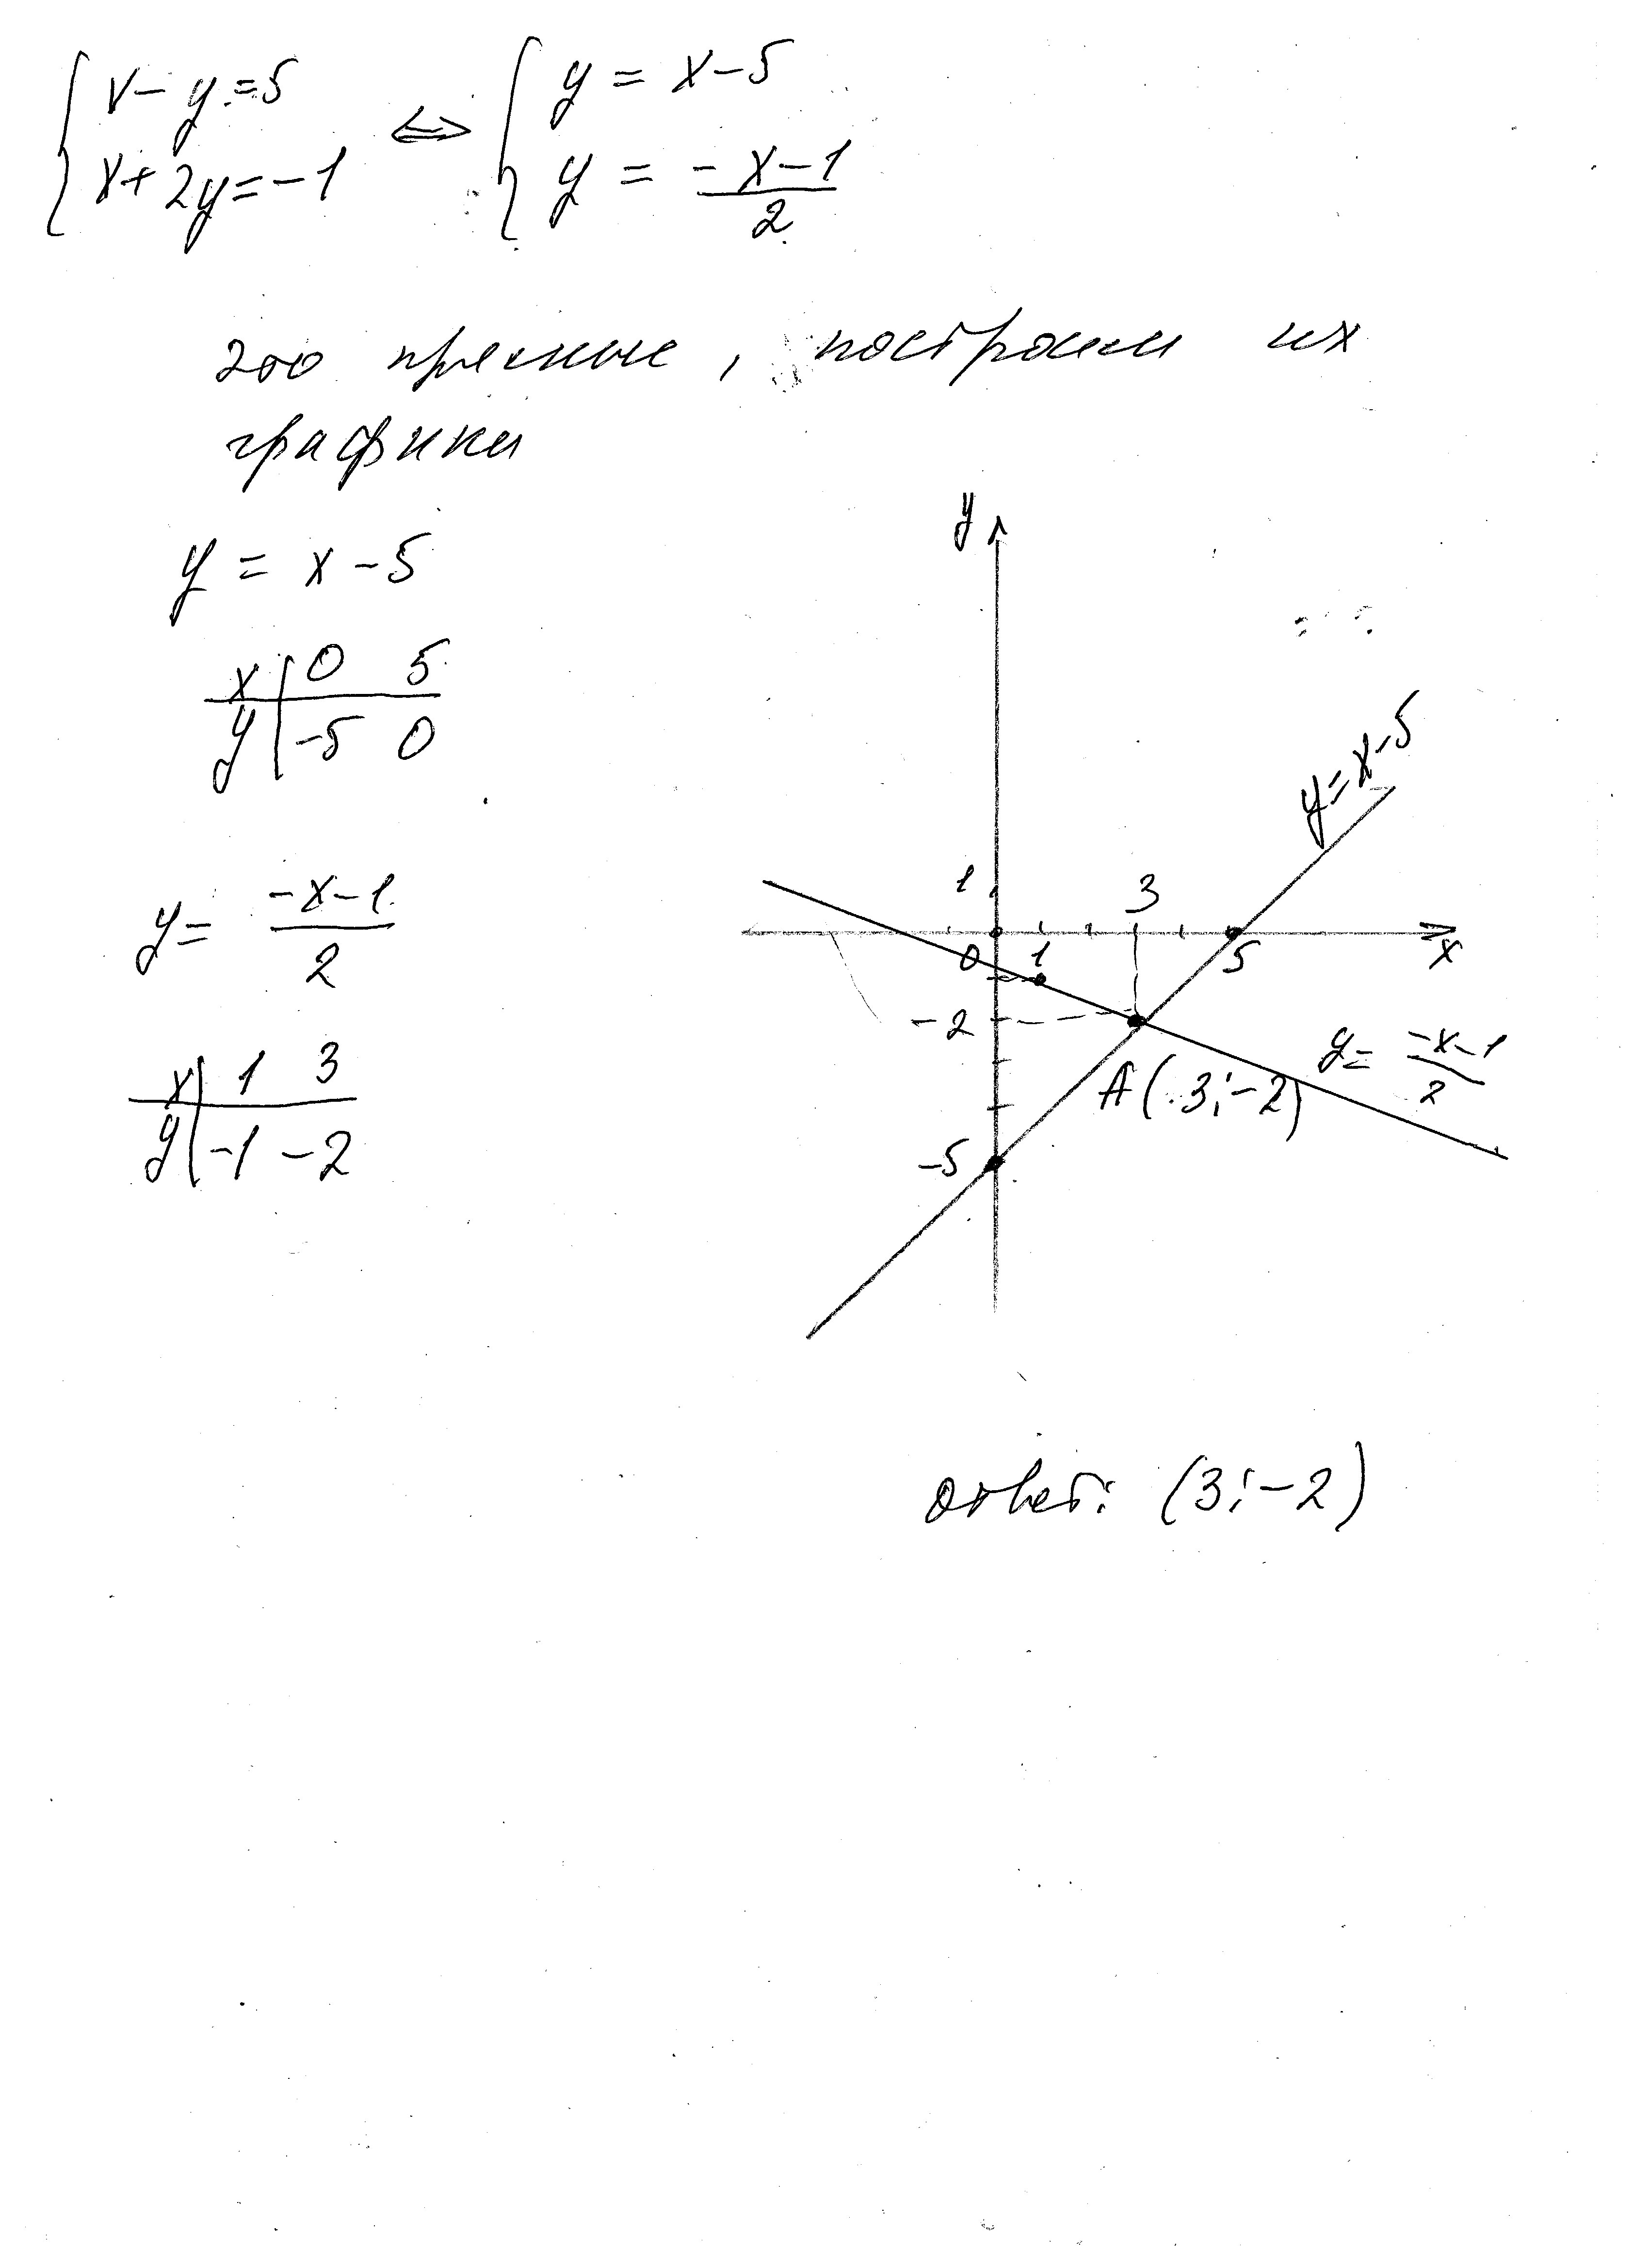 { x - y = 5 ⇔ { y = x - 5
{ x + 2y = -1 { y = (-x - 1)/2
это прямые, построим их
графики
y = x - 5
x | 0 5
y | -5 0
y = (-x - 1)/2
x | 1 3
y | -1 -2
y
y = x - 5
1
3
0 1 5 x
-2
y = (-x - 1)/2
A(3; -2)
-5
ответ: (3; -2)